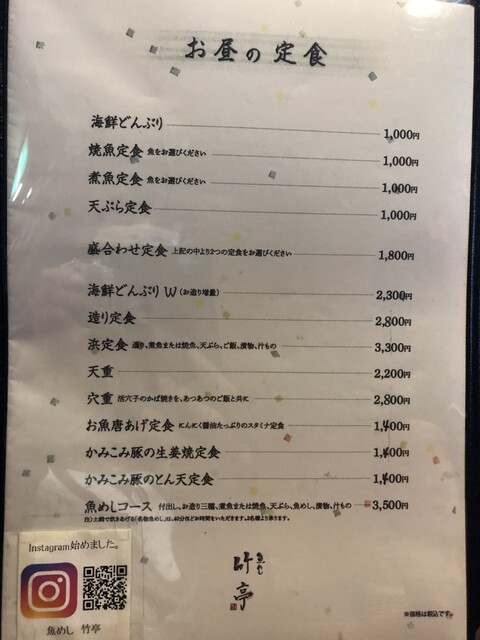 お昼の定食
海鮮どんぶり 1,000円
焼魚定食 魚をお選びください 1,000円
煮魚定食 魚をお選びください 1,000円
天ぷら定食 1,000円
盛合わせ定食 上記の中より2つの定食をお選びください 1,800円
海鮮どんぶりW（お造り増量） 2,300円
造り定食 2,800円
浜定食 造り、煮魚または焼魚、天ぷら、ご飯、漬物、汁もの 3,300円
天重 2,200円
穴重 活穴子のかば焼きを、あつあつのご飯と共に 2,800円
お魚唐あげ定食 にんにく醤油たっぷりのスタミナ定食 1,400円
かみこみ豚の生姜焼定食 1,400円
かみこみ豚のとん天定食 1,400円
魚めしコース 付出し、お造り三種、煮魚または焼魚、天ぷら、魚めし、漬物、汁もの 3,500円
注）土鍋で炊きあげる「名物魚めし」は、40分ほどお時間をいただきます。2名様より承ります。
Instagram始めました。
魚めし 竹亭
魚めし
竹亭
※価格は税込です。